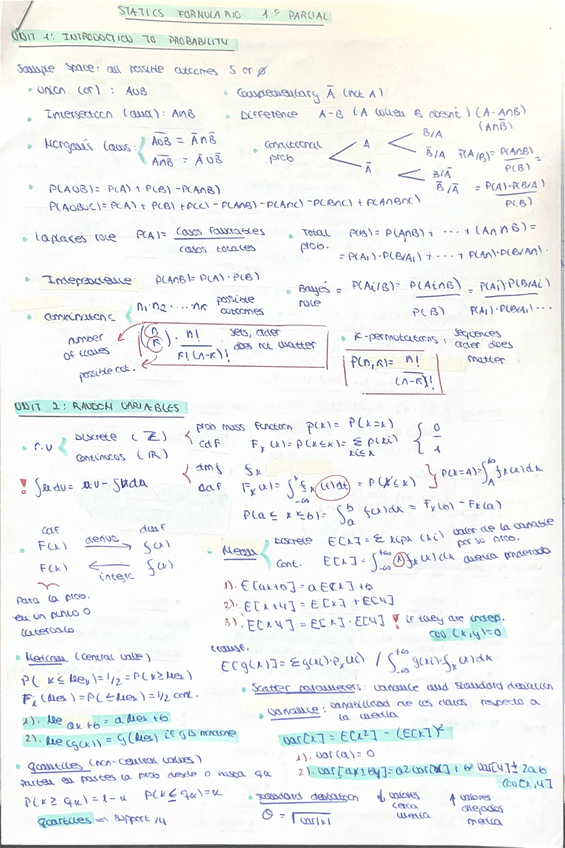 STATICS FORMULARIO 1º PARCIAL
UNIT 1: INTRODUCTION TO PROBABILITY
Sample space: all possible outcomes S or Ø
• Union (or): A∪B
• Complementary Ā (not A)
• Intersection (and): A∩B
• Difference A-B (A when B doesn't) (A-A∩B)
(A∩B̅)
• Morgan's laws: { \overline{A∪B} = Ā∩B̅
\overline{A∩B} = Ā∪B̅
• Conditional prob
A B/A
B̅/A
Ā B/Ā
B̅/Ā
P(A/B) = P(A∩B)/P(B) = P(A)·P(B/A)/P(B)
• P(A∪B) = P(A) + P(B) - P(A∩B)
P(A∪B∪C) = P(A) + P(B) + P(C) - P(A∩B) - P(A∩C) - P(B∩C) + P(A∩B∩C)
• Laplace's rule P(A) = casos favorables / casos totales
• Total prob. P(B) = P(A∩B) + ··· + (An∩B) =
= P(A₁)·P(B/A₁) + ··· + P(An)·P(B/An).
• Independence P(A∩B) = P(A)·P(B)
• Bayes' rule = P(Ai/B) = P(Ai∩B)/P(B) = P(Ai)·P(B/Ai)/P(A₁)·P(B/A₁)···
• Combinations { n₁·n₂ ···· nk possible outcomes
number of
(n k) · n!/k!(n-k)! sets, order does not matter
possible out.
• k-permutations: sequences order does matter
P(n,k) = n!/(n-k)!
UNIT 2: RANDOM VARIABLES
• r.v { Discrete (ℤ)
continuous (ℝ)
prob mass function p(x) = P(X=x)
cdf Fx(x) = P(X≤x) = Σ p(xi) xi≤x { 0 1
dmf fx
cdf Fx(x) = ∫-∞ˣ fx(t)dt = P(X≤x) } P(x=A) = ∫A fx(x)dx
! ∫u dv = uv - ∫v du
P(a≤x≤b) = ∫ₐᵇ f(x)dx = Fx(b) - Fx(a)
cdf
F(x) deriv → f(x)
F(x) ← integ f(x)
Para la prob. en un punto o intervalo
• Mean { Discrete E[x] = Σ xi px(xi) valor de la variable por su prob.
Cont. E[x] = ∫-∞+∞ x fx(x)dx media ponderada
1). E[ax+b] = aE[x]+b
2). E[x+y] = E[x] + E[y]
3). E[x·y] = E[x]·E[y] ! if they are indep.
cov(x,y)=0
E[g(x)] = Σg(xi)·px(xi) / ∫-∞+∞ g(x)·fx(x)dx
• Median (central value)
P(x≤Mex) = 1/2 = P(x≥Mex)
Fx(Mex) = P(≤Mex) = 1/2 cont.
1). Me ax+b = aMex+b
2). Me(g(x)) = g(Mex) if g is monotone
• Scatter parameters: variance and standard deviation
• Variance: variabilidad de los datos respecto a la media
Var[x] = E[x²] - (E[x])²
1). Var(a) = 0
2). Var[ax±by] = a2 Var[x] + b² Var[y] ± 2ab cov[x,y]
• Quantiles (non-central values)
P(x≥qα) = 1-α P(x≤qα) = α
quartiles → support /4
• Standard deviation
σ = √Var[x]
↓ valores cerca media
↑ valores alejados media